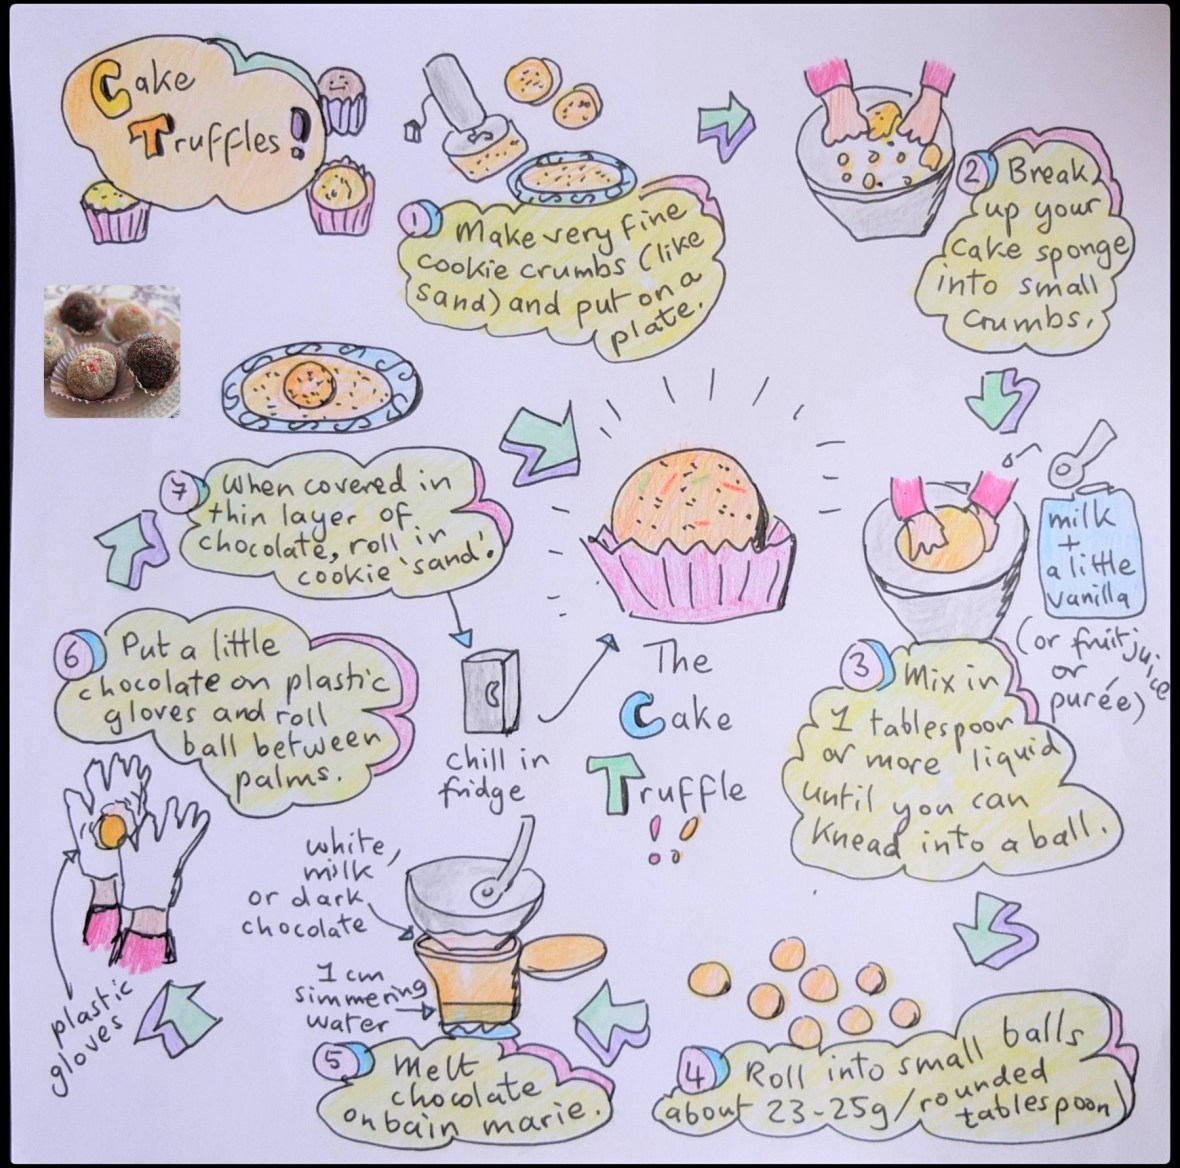 Cake
Truffles!
1 Make very fine
cookie crumbs (like
sand) and put on a
plate.
2 Break
up your
cake sponge
into small
crumbs.
milk
+
a little
vanilla
(or fruit juice
or
purée)
3 Mix in
1 tablespoon
or more liquid
until you can
knead into a ball.
4 Roll into small balls
(about 23-25g/rounded
tablespoon)
5 Melt
chocolate
on bain marie.
white,
milk
or dark
chocolate
1 cm
simmering
water
6 Put a little
chocolate on plastic
gloves and roll
ball between
palms.
plastic
gloves
7 When covered in
thin layer of
chocolate, roll in
cookie 'sand'.
chill in
fridge
The
Cake
Truffle
!!